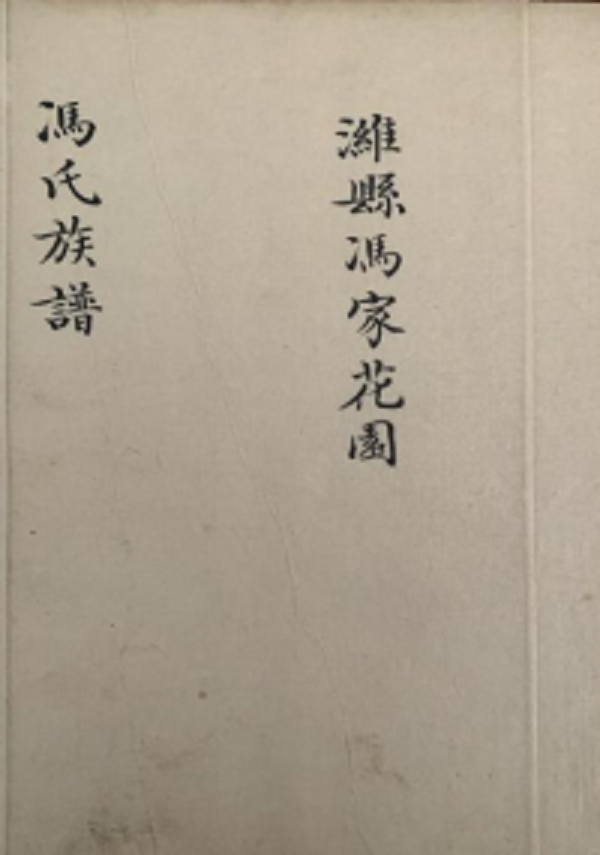 濰縣馮家花園
馮氏族譜